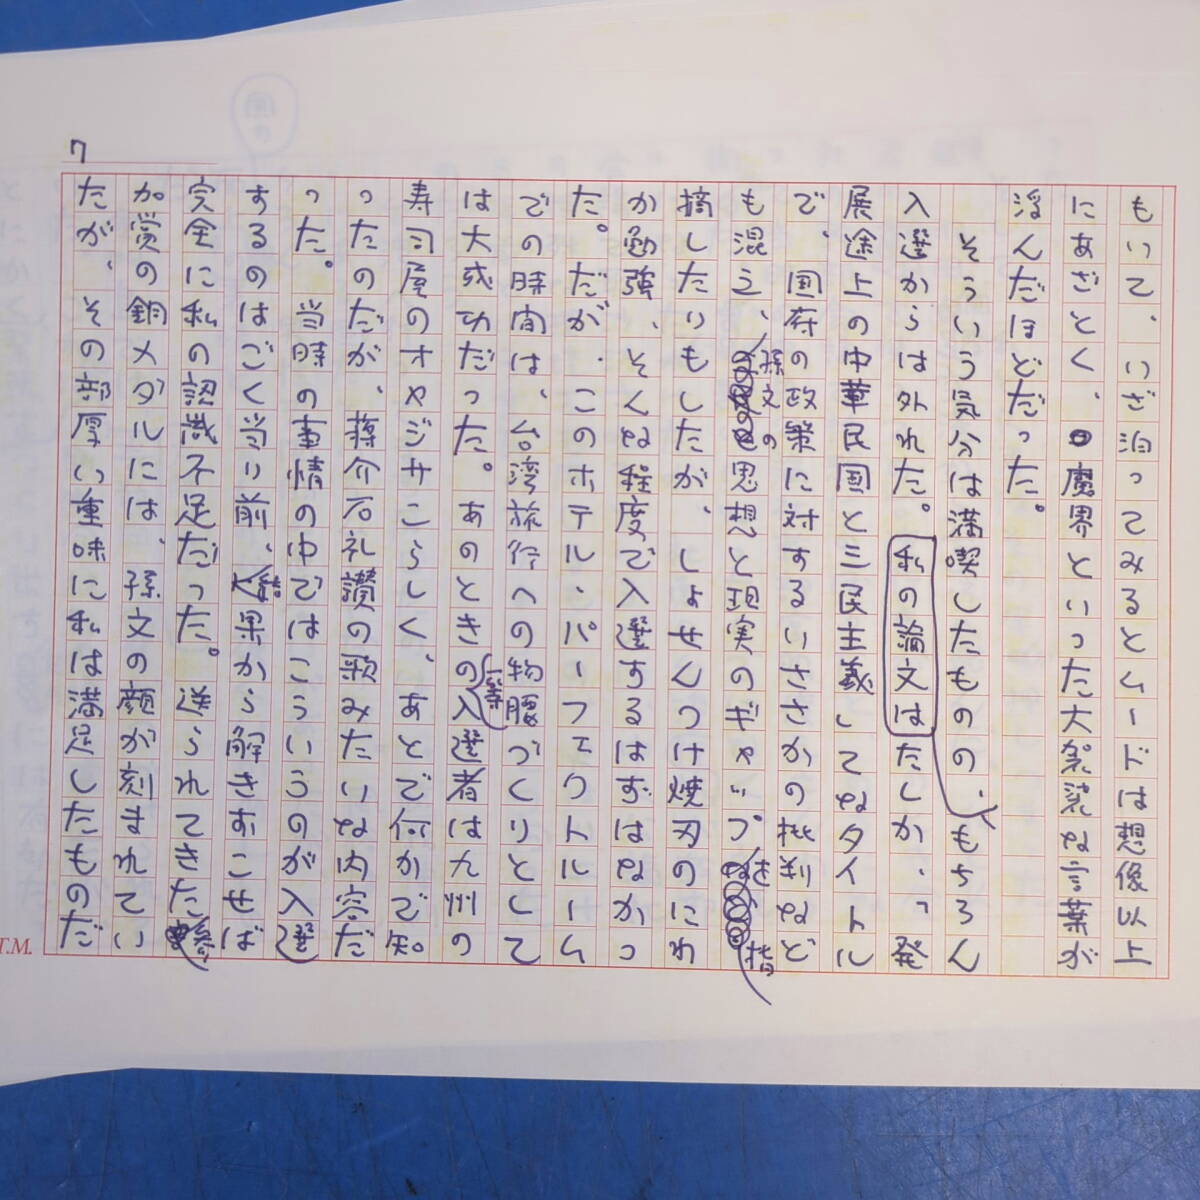 7
もいて、いざ泊ってみるとムードは想像以上
にあざとく、魔界といった大袈裟な言葉が
浮んだほどだった。
そういう気分は満喫したものの、もちろん
入選からは外れた。私の論文はたしか、「発
展途上の中華民国と三民主義」してなタイトル
で、国府の政策に対するいささかの批判など
も混え、孫文の思想と現実のギャップを指
摘したりもしたが、しょせんつけ焼刃のにわ
か勉強、そんな程度で入選するはずはなかっ
た。だが、このホテル・パーフェクトルーム
での時間は、台湾旅行への物腰づくりとして
は大成功だった。あのときの一等入選者は九州の
寿司屋のオヤジサこらしく、あとで何かで知
ったのだが、蒋介石礼讃の歌みたいな内容だ
った。当時の事情の中ではこういうのが入選
するのはごく当り前、結果から解きおこせば
完全に私の認識不足だった。送られてきた参
加賞の銅メダルには、孫文の顔が刻まれてい
たが、その部厚い重味に私は満足したものだ
T.M.
国の